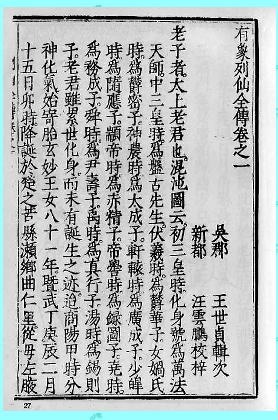 有象列仙全傳卷之一
吳郡 王世貞輯次
新都 汪雲鵬校梓
老子者太上老君也混沌圖云初三皇時化身號為萬法
天師中三皇時為盤古先生伏羲時為鬱華子女媧氏
時為鬱密子神農時為太成子軒轅時為廣成子少皥
時為隨應子顓帝時為赤精子帝嚳時為錄圖子堯時
為務成子舜時為尹壽子禹時為真行子湯時為錫則
子老君雖累世化身而未有誕生之迹迨商陽甲時分
神化氣始寄胎玄妙王女八十一年暨武丁庚辰二月
十五日卯時降誕於楚之苦縣瀨鄉曲仁里從母左腋
27